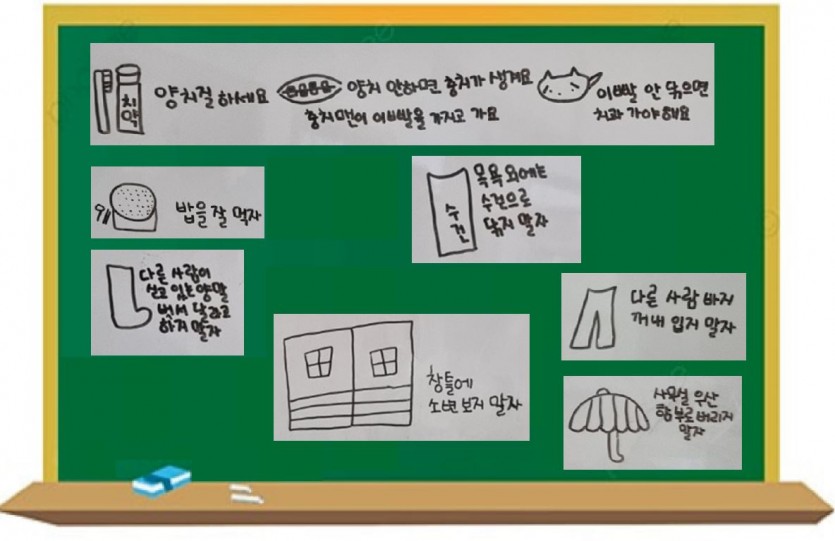 치약
양치질 하세요
양치 안하면 충치가 생겨요
충치맨이 이빨을 가지고 가요
이빨 안 닦으면
치과 가야해요
밥을 잘 먹자
수건
목욕 외에는
수건으로
닦지 말자
다른 사람이
신고 있는 양말
벗어 달라고
하지 말자
다른 사람 바지
꺼내 입지 말자
창틀에
소변 보지 말자
사무실 우산
함부로 버리지
말자